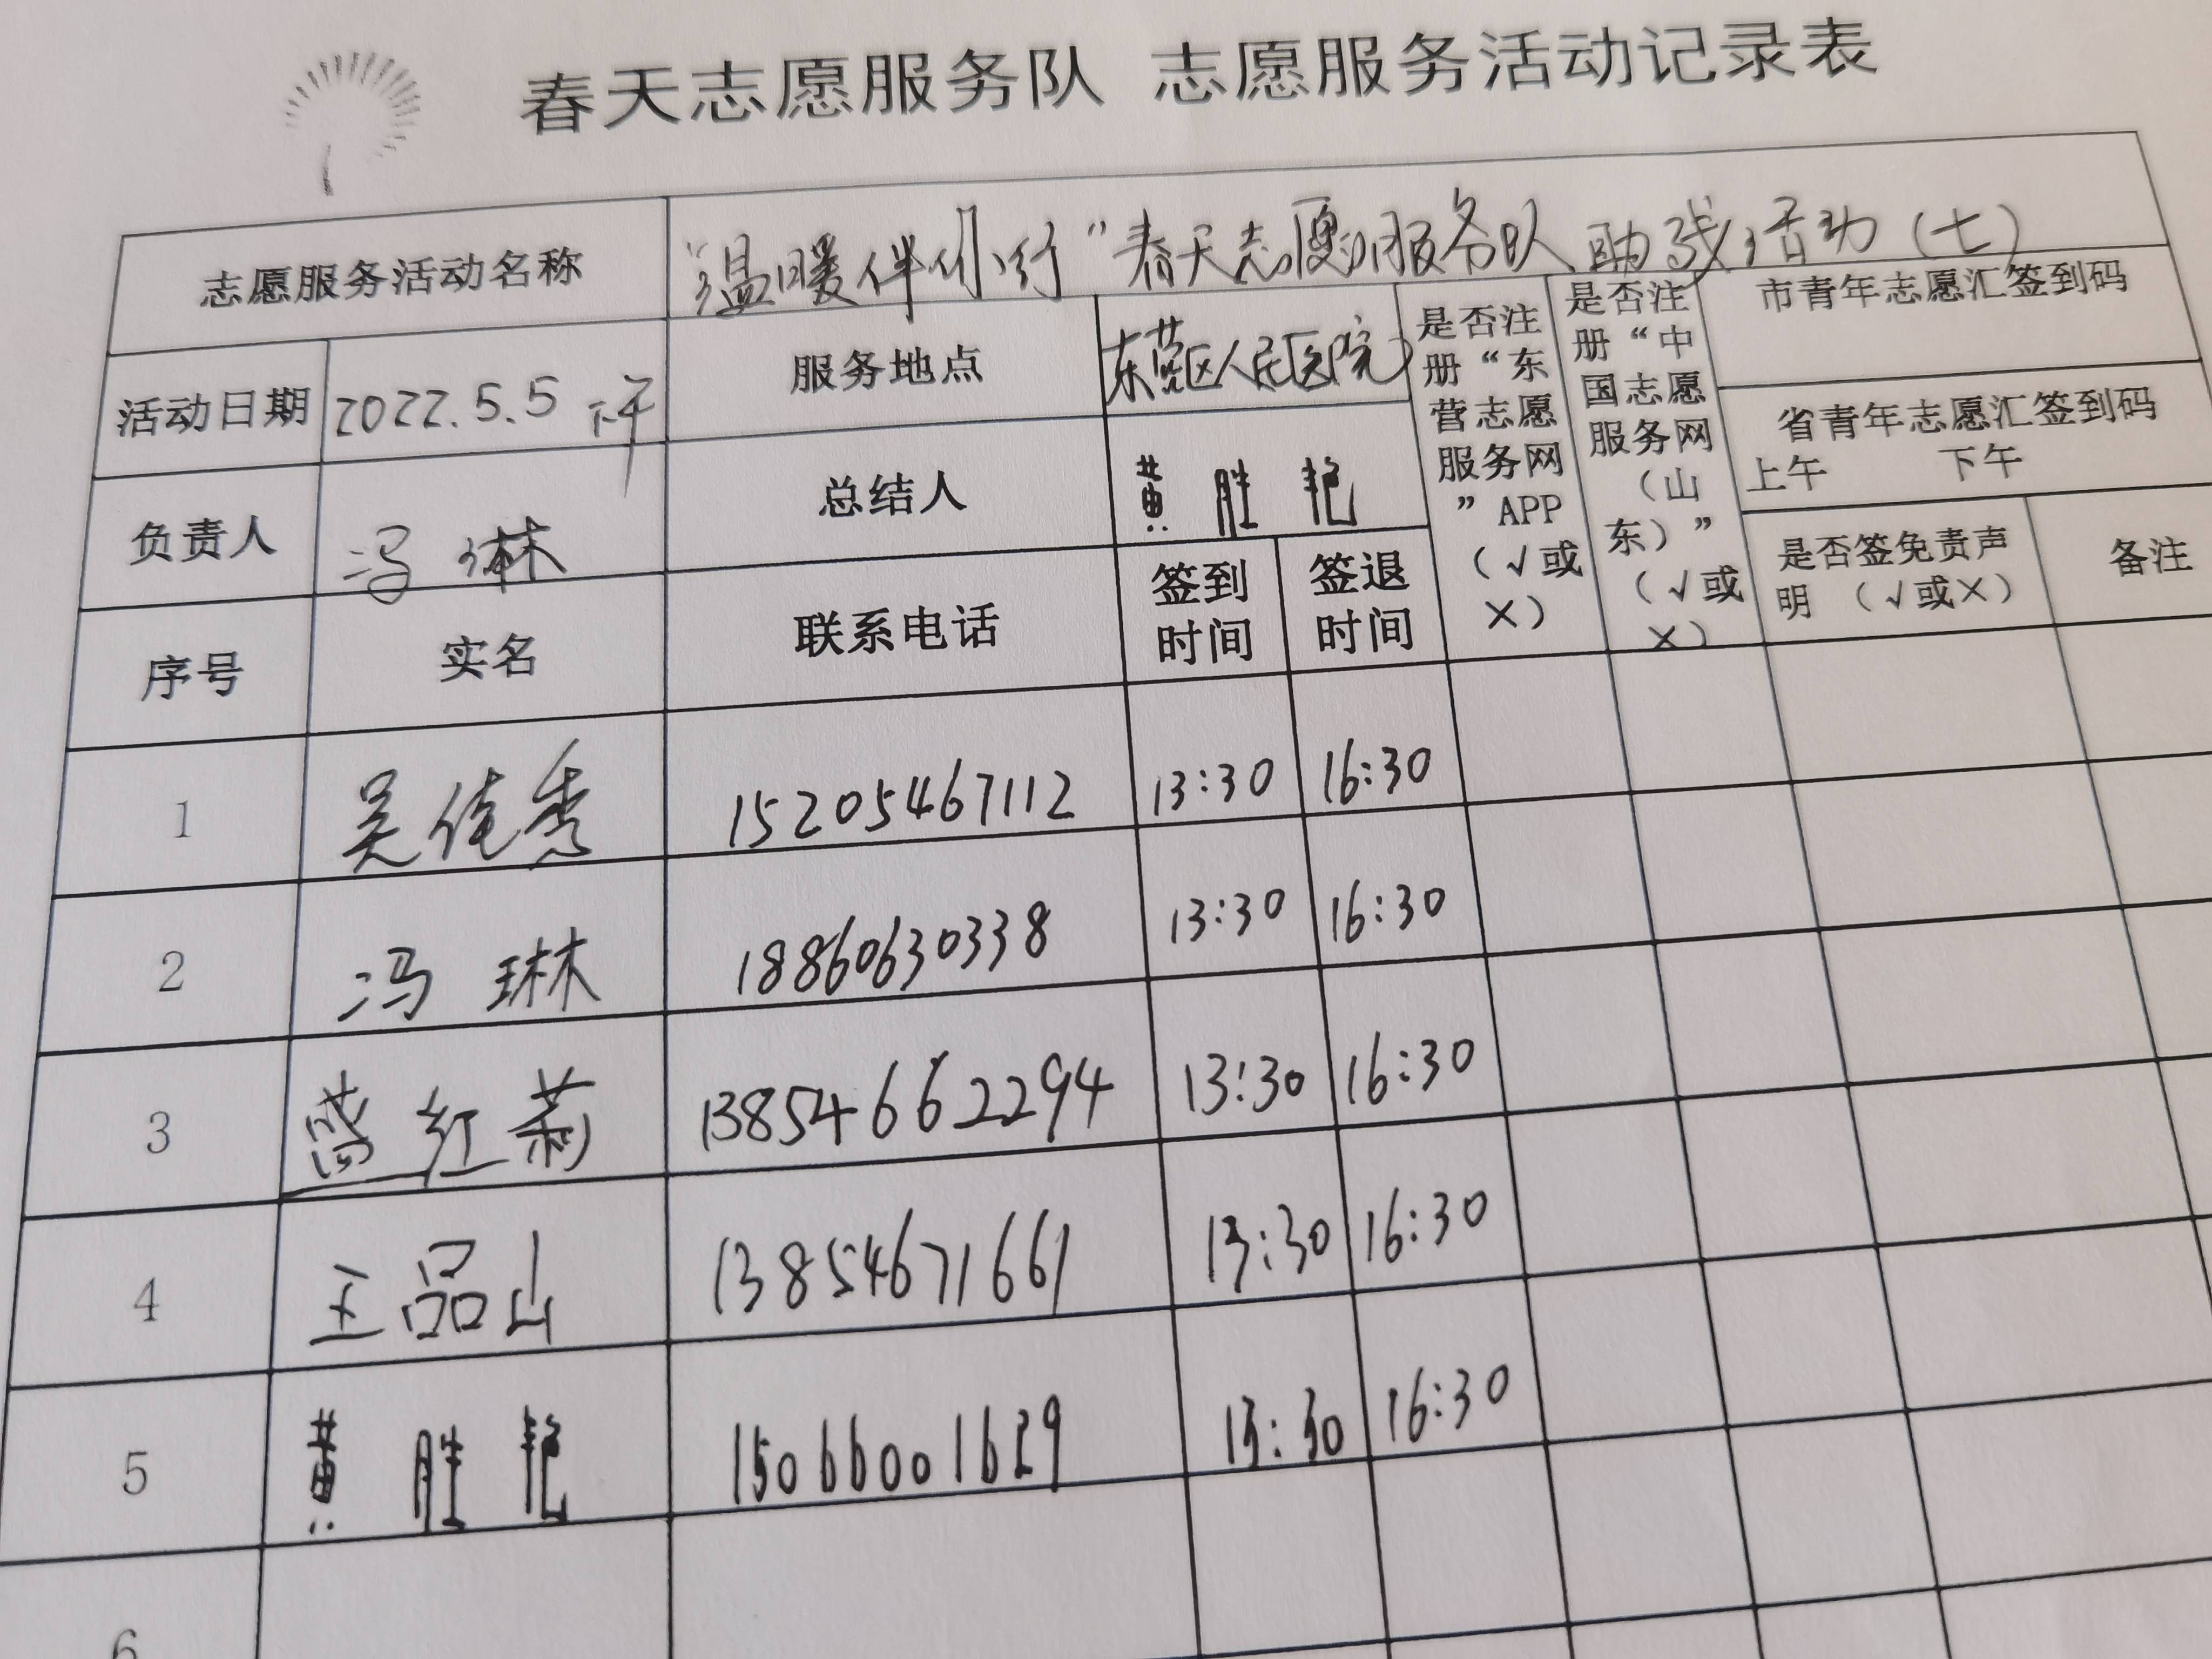 春天志愿服务队 志愿服务活动记录表
志愿服务活动名称 “温暖伴你行”春天志愿服务队助残活动（七）
活动日期 2022.5.5 下午 服务地点 东营区人民医院
是否注册“东营志愿服务网”APP（√或×）
是否注册“中国志愿服务网（山东）”（√或×）
市青年志愿汇签到码
省青年志愿汇签到码
上午 下午
负责人 冯琳 总结人 黄胜艳
是否签免责声明（√或×） 备注
序号 实名 联系电话 签到时间 签退时间
1 吴佳秀 15205467112 13:30 16:30
2 冯琳 18860630338 13:30 16:30
3 红莉 13854662294 13:30 16:30
4 王品山 13854671661 13:30 16:30
5 黄胜艳 15066001629 13:30 16:30
6